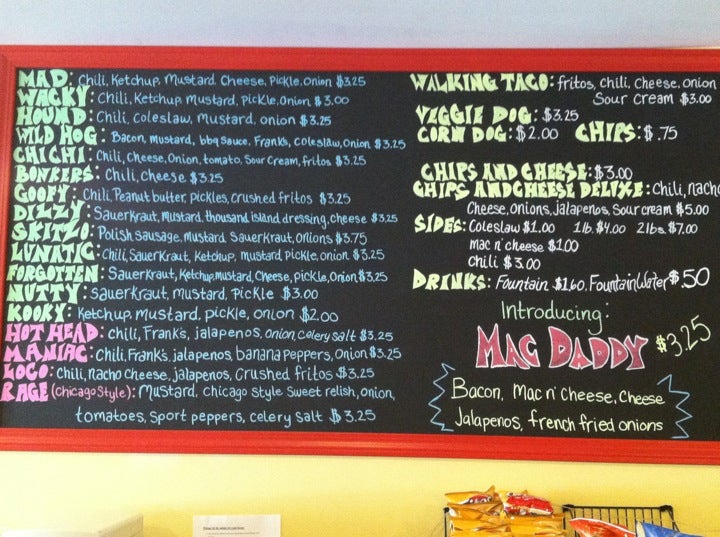 MAD: Chili, Ketchup, Mustard, Cheese, Pickle, Onion $3.25
WACKY: Chili, Ketchup, Mustard, Pickle, Onion $3.00
HOUND: Chili, Coleslaw, Mustard, onion $3.25
WILD HOG: Bacon, mustard, bbq sauce, Frank's, coleslaw, Onion $3.25
CHI CHI: Chili, Cheese, Onion, tomato, Sour Cream, fritos $3.25
BONKERS: Chili, Cheese $3.25
GOOFY: Chili, Peanut butter, pickles, crushed fritos $3.25
DIZZY: Sauerkraut, Mustard, thousand island dressing, cheese $3.25
SKITZO: Polish sausage, mustard, Sauerkraut, Onions $3.75
LUNATIC: Chili, Sauerkraut, Ketchup, Mustard, pickle, onion $3.25
FORGOTTEN: Sauerkraut, Ketchup, mustard, Cheese, pickle, Onion $3.25
NUTTY: Sauerkraut, Mustard, Pickle $3.00
KOOKY: Ketchup, Mustard, pickle, onion $2.00
HOT HEAD: chili, Frank's, jalapenos, onion, celery salt $3.25
MANIAC: Chili, Frank's, jalapenos, banana peppers, Onion $3.25
LOCO: Chili, nacho cheese, jalapenos, Crushed fritos $3.25
RAGE (Chicago Style): Mustard, Chicago Style Sweet relish, onion,
tomatoes, Sport peppers, celery salt $3.25
WALKING TACO: fritos, chili, cheese, onion
Sour cream $3.00
VEGGIE DOG: $3.25
CORN DOG: $2.00 CHIPS: $.75
CHIPS AND CHEESE: $3.00
CHIPS AND CHEESE DELUXE: Chili, nacho
Cheese, Onions, jalapenos, Sour cream $5.00
SIDES: Coleslaw $1.00 1lb. $4.00 2lbs. $7.00
mac n' cheese $1.00
chili $3.00
DRINKS: Fountain $1.60, Fountain Water $.50
Introducing:
MAC DADDY $3.25
Bacon, Mac n' Cheese, Cheese
Jalapenos, french fried onions